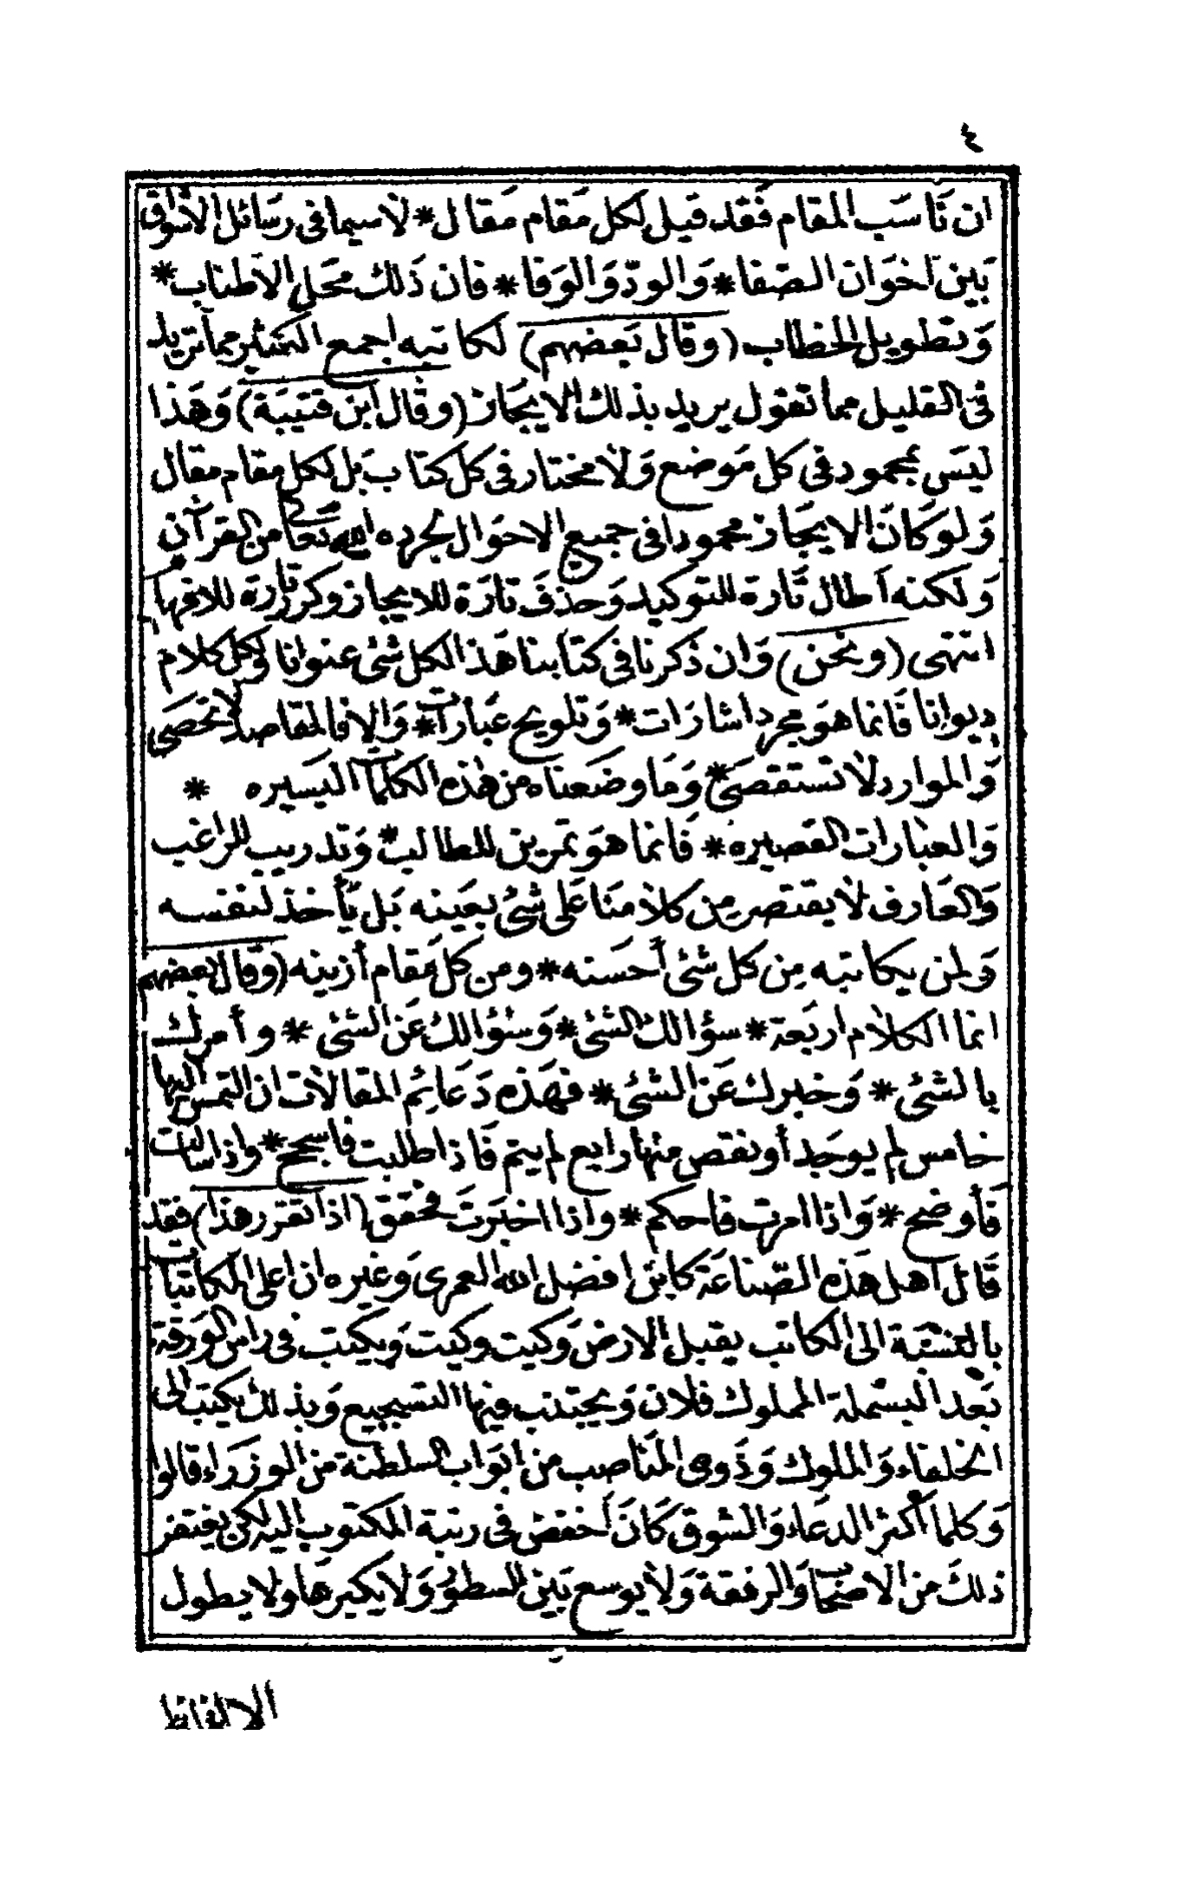 ٤
ان نَاسَب المقام فَقد قيل لكل مَقام مَقال * لاَ سيما فى رسَائل الاشواق
بَين اَخوَان الصّفا * وَالودّ وَالوَفا * فان ذَلك مَحَل الاَطناب *
وَتطويل الخطاب (وقال بَعضهم) لكاتبه اجمع الكثير مما تريد
فى القليل مما تقول يريد بذلك الايجاز (وقال ابن قتيبَة) وَهَذا
ليسَ بمحمود فى كل مَوضع وَلاَ مختار فى كل كتاب بَل لكل مقام مقال
وَلو كَانَ الايجاز محمودا فى جميع الاحوَال لجرده الله تعَالى من القرآن
وَلكنه اَطال تَارة للتوكيد وَحذفَ تارَة للايجاز وكرر تارَة للافهام
انتهى (ونحن) وَان ذكرنا فى كتابنا هَذا لكل شئ عنوانا ولكل كلام
ديوانا فَانما هوَ مجرد اشارَات * وَتلويح عبَارات * وَالا فالمقاصد لا تحصَى
وَالموارد لاَ تستقصَى * وَمَا وضَعناه من هٰذه الكلمات اليَسيره *
وَالعبَارات القصيره * فَانما هوَ تمرين للطالب * وَتدريب للراغب
وَالعَارف لاَ يقتصر مِن كلاَمنَا عَلى شئ بعَينه بَل يَأخذ لنفسه
وَلمن يكاتبه مِن كل شئ أحسَنه * ومن كل مَقام أزينه (وقال بعضهم
انما الكلاَم اربَعة * سؤالك الشئ * وَسُؤالك عَن الشئ * وأمرك
بالشئ * وَخبرك عَن الشئ * فهَذه دَعَائم المقالاَت ان التمس اليها
خامس لم يوجَد أو نقص منها رابع لم يتم فَاذا طلبت فاسجح * واذا سَالت
فَأوضح * وَاذا امرت فاحكم * واذا اخبَرتَ فحَقق (اذا تقرر هذا) فقد
قَال اَهل هَذه الصّناعَة كابن فضل الله العمرى وَغيره ان اعلى المكاتبات
بالنسْبَة الى الكاتب يقبل الارضَ وَكيت وكيت وَيكتب فى راس الورَقة
بَعد البَسْملة المملوك فلان وَيجتنب فيها التسجيع وَبذلك يكتب الى
الخلفاء وَالملوك وَذَوى المنَاصب من ابوَاب السلطنة من الوزَرَاء قالوا
وَكلما اَكثر الدعَاء وَالشوق كَانَ اَخفض فى رتبة المكتوب اليه لكن يغتفر
ذلكَ من الاصحاب وَالرفقة وَلاَ يوسع بَين السطور وَلا يكبرهَا ولا يطول
الالفاظ